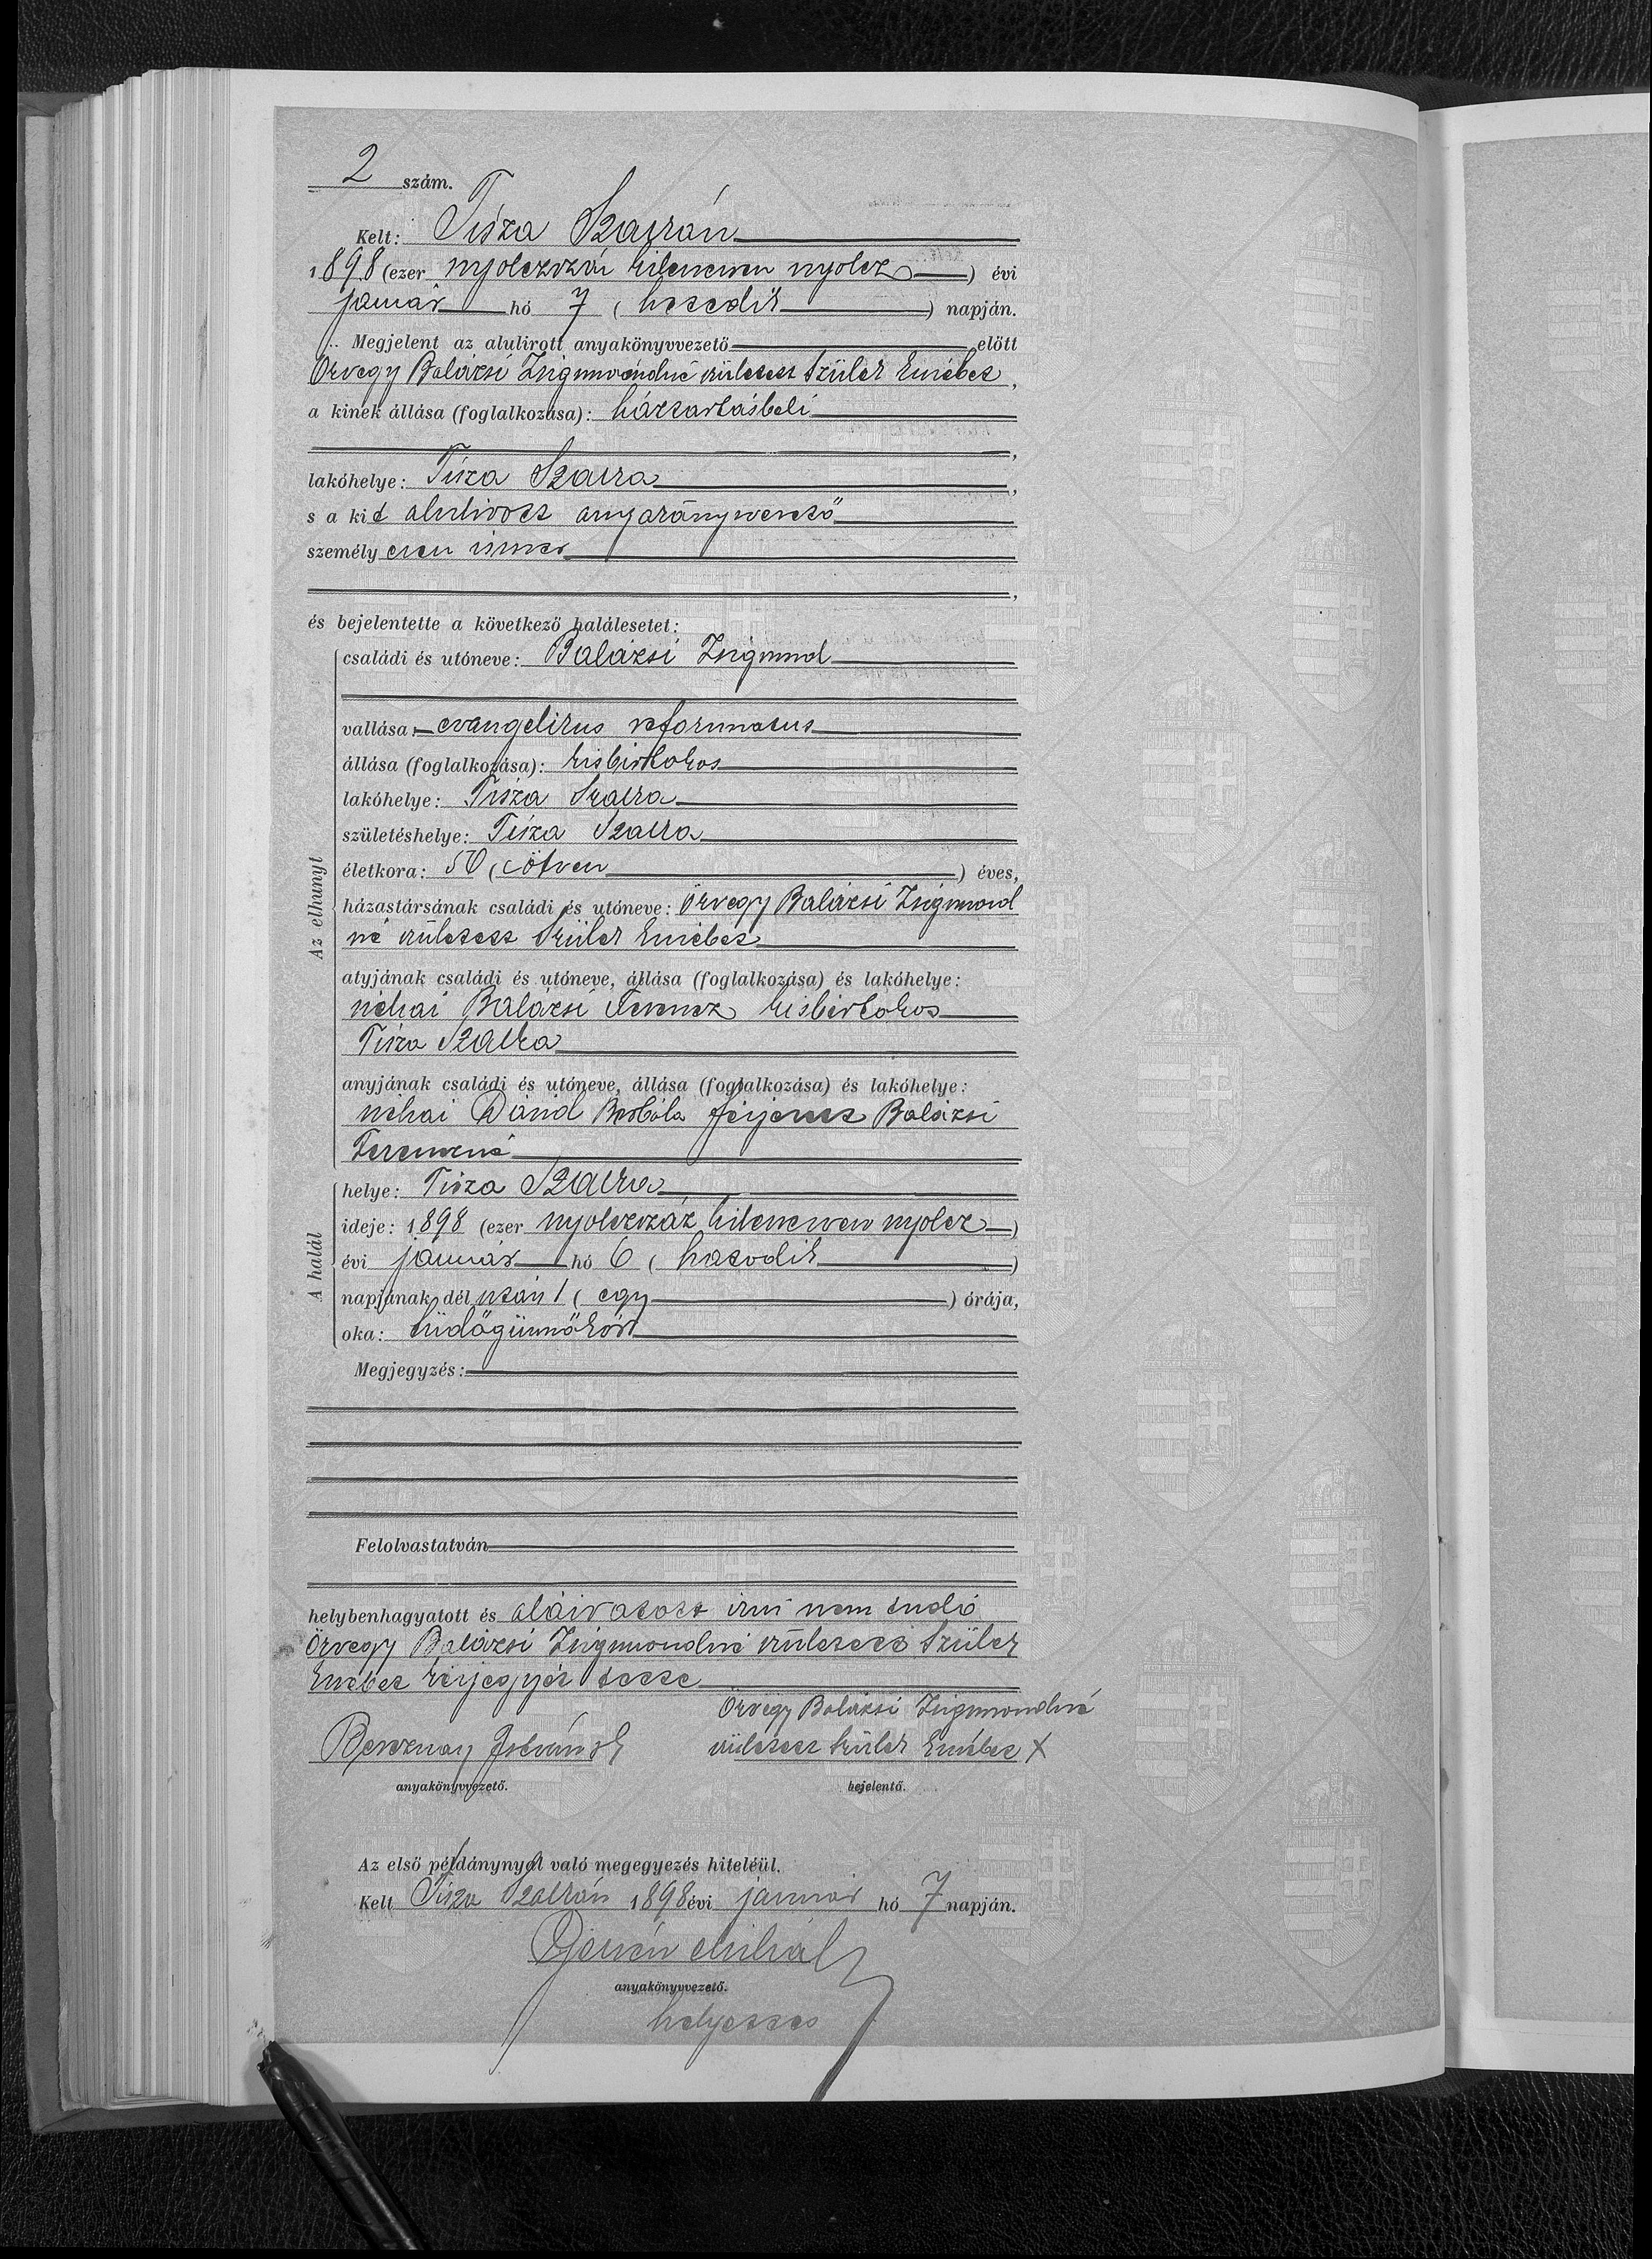 2 szám.
Kelt: Tisza Szalkán
1898 (ezer nyolczszáz kilenczven nyolcz) évi
január hó 7 (hetedik) napján.
Megjelent az alulirott anyakönyvvezető előtt
özvegy Balázsi Zsigmondné született Szüler Erzsébet,
a kinek állása (foglalkozása): háztartásbeli
lakóhelye: Tisza Szalka,
s a kit alulirott anyakönyvvezető
személyesen ismer
és bejelentette a következő halálesetet:
Az elhunyt
családi és utóneve: Balázsi Zsigmond
vallása: evangelikus reformatus
állása (foglalkozása): kisbirtokos
lakóhelye: Tisza Szalka
születéshelye: Tisza Szalka
életkora: 50 (ötven) éves,
házastársának családi és utóneve: özvegy Balázsi Zsigmond
né született Szüler Erzsébet
atyjának családi és utóneve, állása (foglalkozása) és lakóhelye:
néhai Balázsi Ferencz kisbirtokos
Tisza Szalka
anyjának családi és utóneve, állása (foglalkozása) és lakóhelye:
néhai Dávid Borbála férjezett Balázsi
Ferenczné
A halál
helye: Tisza Szalka
ideje: 1898 (ezer nyolczszáz kilenczven nyolcz)
évi január hó 6 (hatodik)
napjának dél után 1 (egy) órája,
oka: tüdőgümőkór
Megjegyzés:
Felolvastatván
helybenhagyatott és aláiratott irni nem tudó
özvegy Balázsi Zsigmondné született Szüler
Erzsébet kézjegyét tette
özvegy Balázsi Zsigmondné
Bereznay István
született Szüler Erzsébet X
anyakönyvvezető.
bejelentő.
Az első példánynyal való megegyezés hiteléül.
Kelt Tisza Szalkán 1898 évi január hó 7 napján.
Mihály
anyakönyvvezető.